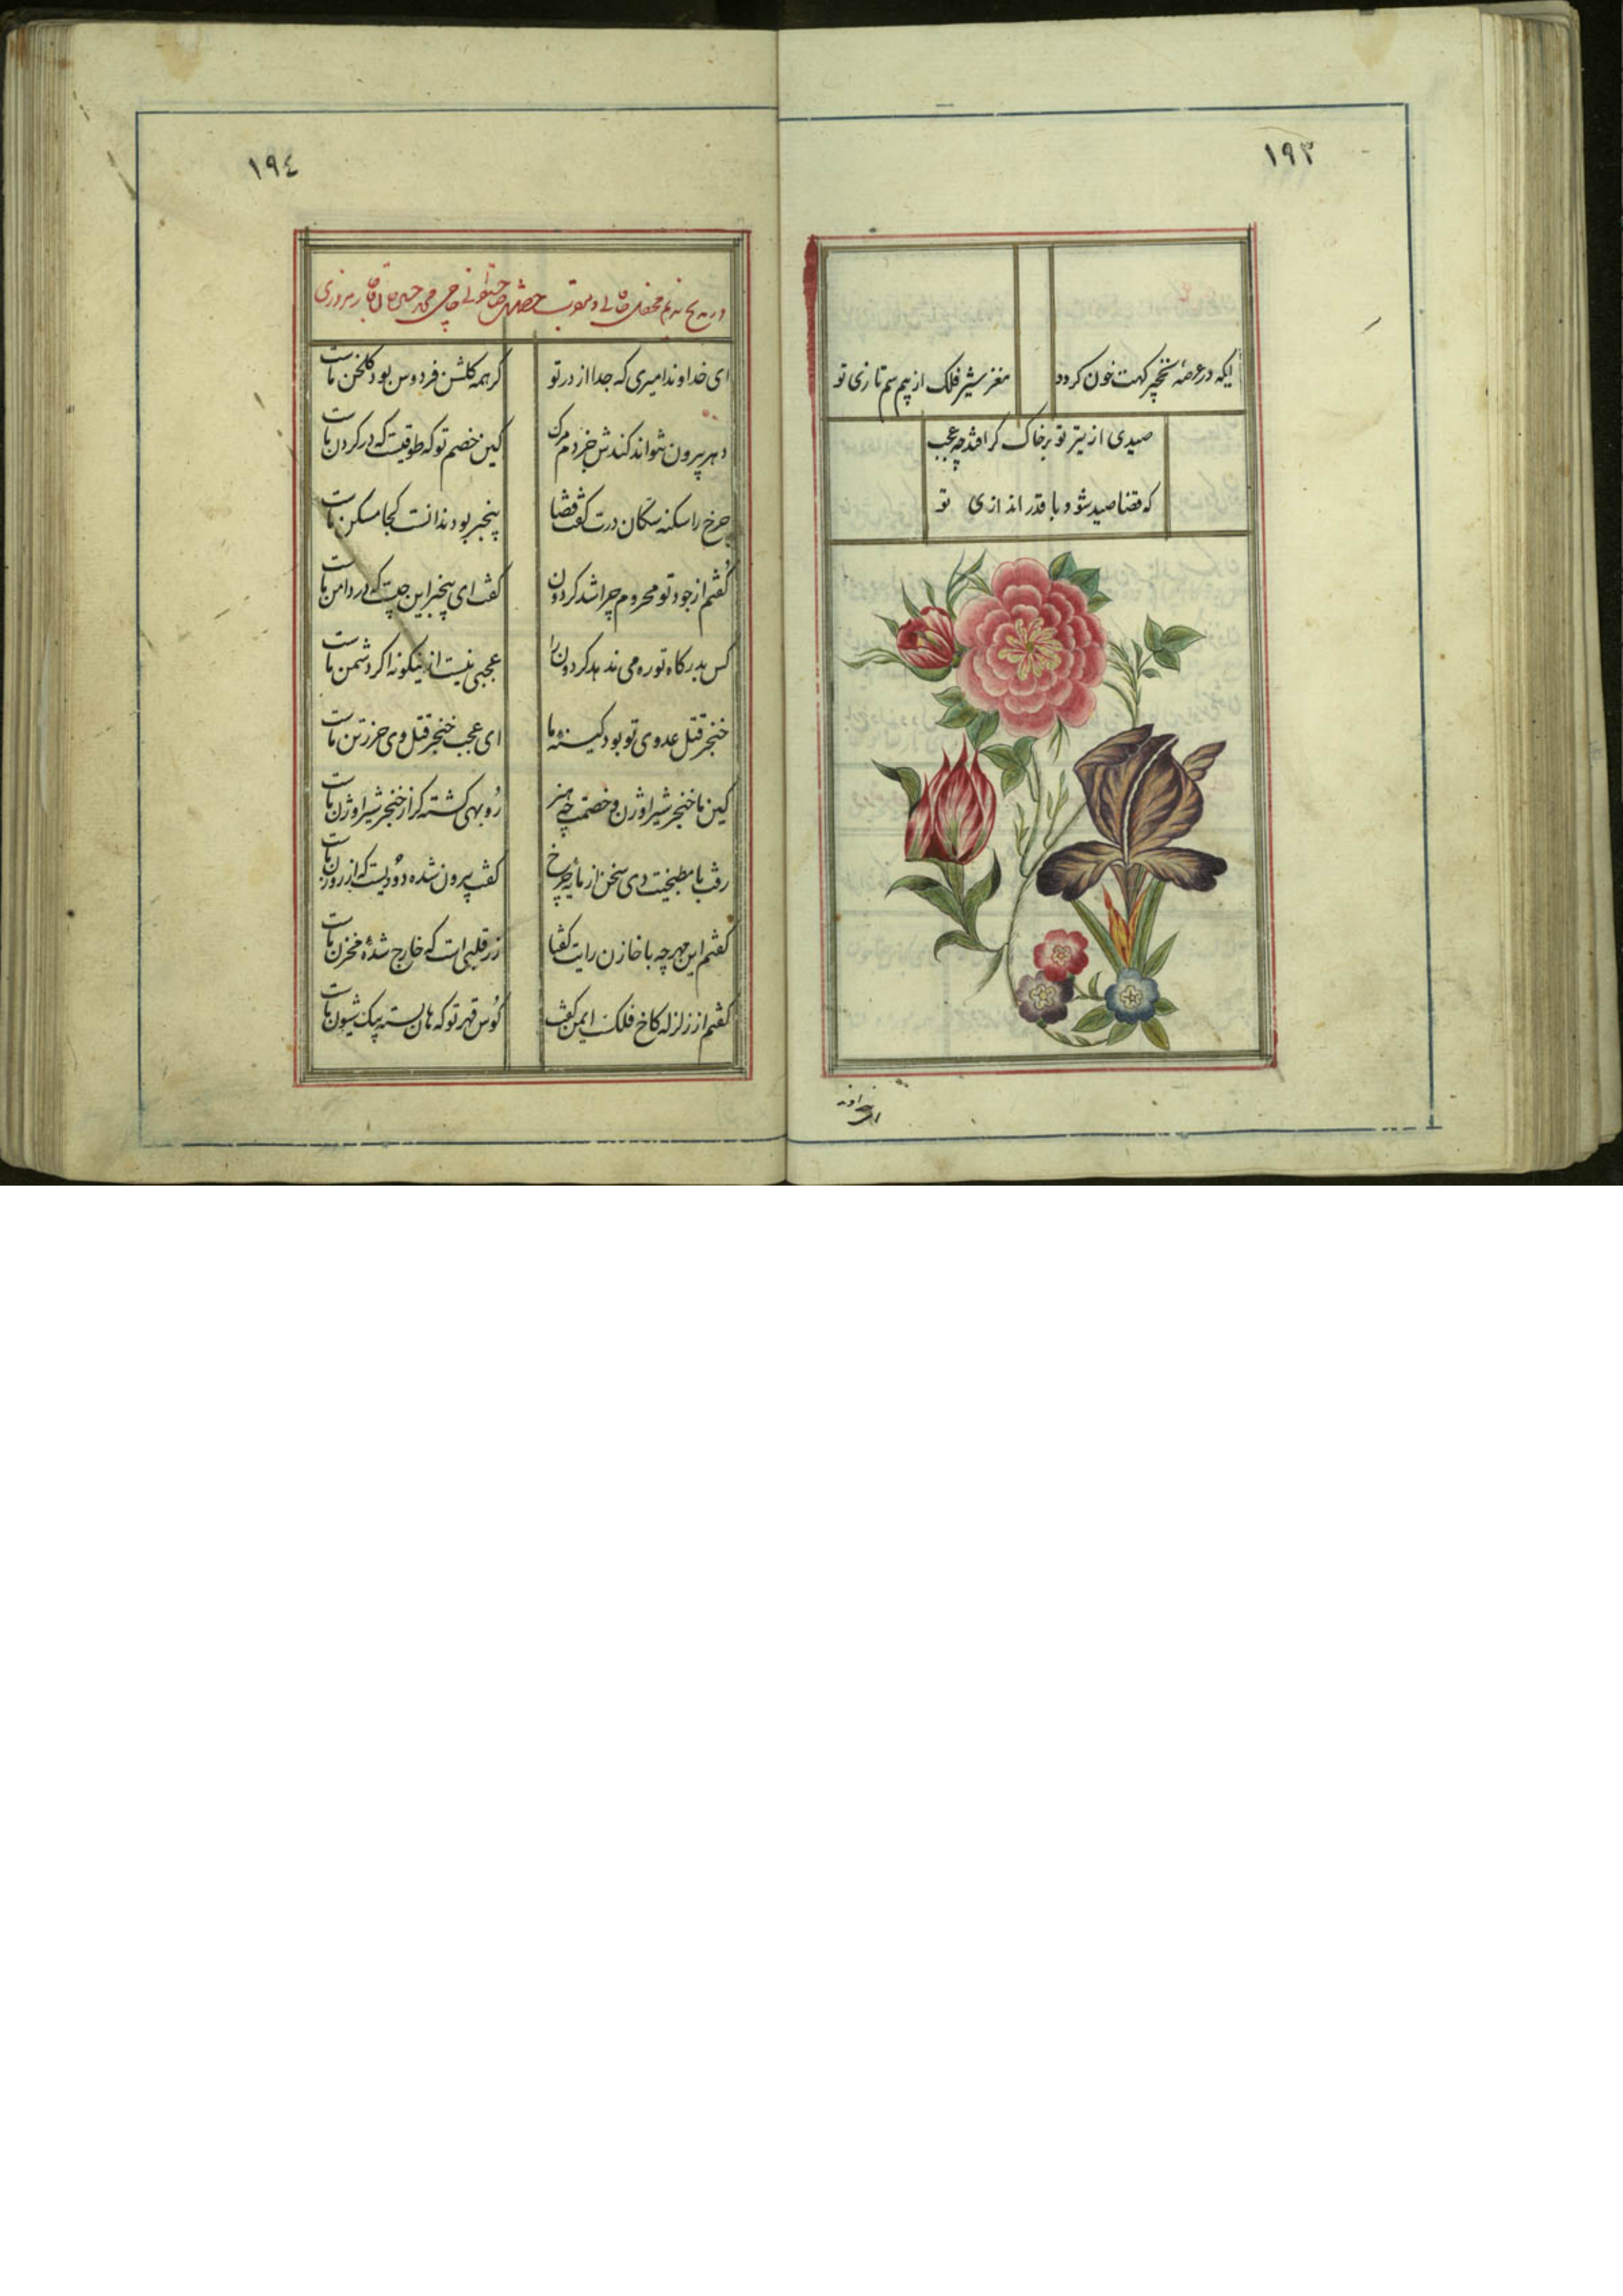 ١٩٣
ایکه در عرصهٔ نخجیر کهت خون کردد
مغز شیر فلک از بیم سم تازی تو
صیدی از تیر تو بر خاک کر افتد چه عجب
که قضا صید شود با قدر اندازی تو
١٩٤
در مدح
ای خداوند امیری که جدا از در تو
کر همه کلشن فردوس بود کلخن ماست
دهر بیرون نتواند کندش جز دم مرک
کین خصم تو که طوقیست که در کردن ماست
چرخ را سکنه سکان درت کفت قضا
بیخبر بود ندانست کجا مسکن ماست
کفتم از جود تو محروم چرا شد کردون
کفت ای بیخبر این جیست که در دامن ماست
کس بدرکاه تو ره می ندهد کردون را
عجبی نیست از اینکونه اکر دشمن ماست
خنجر قتل عدوی تو بود کینه ما
ای عجب خنجر قتل وی حرز تن ماست
کین ما خنجر شیر اوژن و خصمت چه هنر
روبهی کشته کر از خنجر شیر اوژن ماست
رفت با مطبخیت دی سخن از مایهٔ چرخ
کفت بیرون شده دودیست که از روزن ماست
کفتم این مهر چه با خازن رایت کفتا
زر قلبی است که خارج شدهٔ مخزن ماست
کفتم از زلزله کاخ فلک ایمن کفت
کوس قهر تو که هان بسته بیک شیون ماست